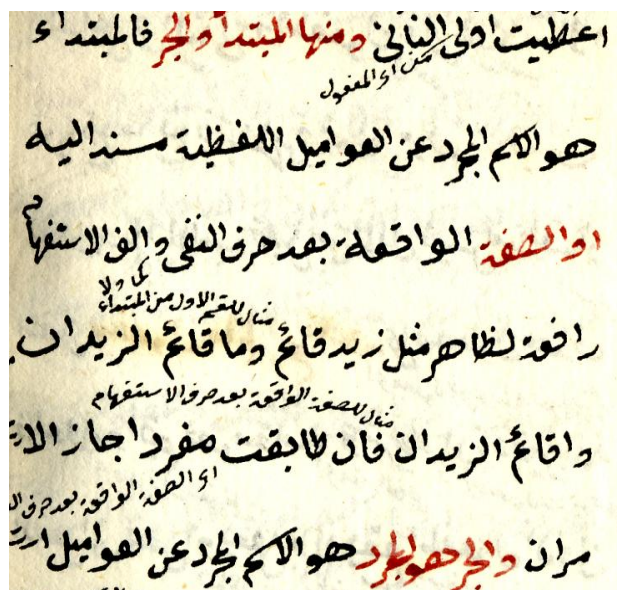 اعطيت اولى الثانى ومنها المبتدأ والخبر فالمبتداء
من اى المفعول
هو الاسم المجرد عن العواميل اللفظية مسند اليه
او الصفة الواقعة بعد حرف النفى والف الاستفهام
ولا
مثال للقسم الاول من المبتداء
رافعة لظاهر مثل زيد قائم وما قائم الزيدان
مثال للصفة الواقعة بعد حرف الاستفهام
واقائم الزيدان فان طابقت مفردا جاز الا
اى الصفة الواقعة بعد حرف
مران والخبر هو المجرد هو الاسم المجرد عن العواميل